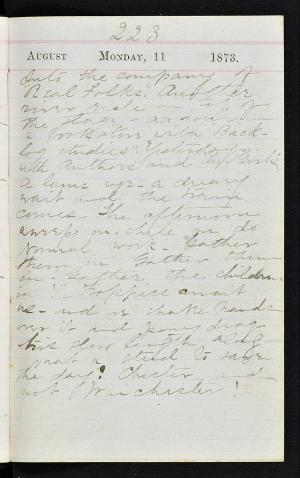 223
AUGUST MONDAY, 11 1873.
into the company of
"Real Folks" Another
river ride
the stage - around
a Bookstore with Back-
log studies" "Yesterdays
with Authors" and
a lunch up - a dreary
wait and the train
comes - The afternoon
sweeps on while we do
Normal work - "Gather
them in Gather them
in Gather the children
in!" Poppies await
us - and we shake hands
over it and
his slow length along
What a steed to save
the day! Chester and
not Winchester!